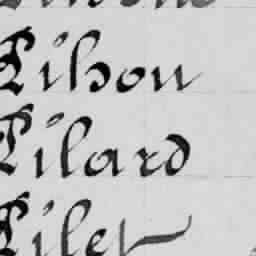 Pihou
Pilard
Pilet